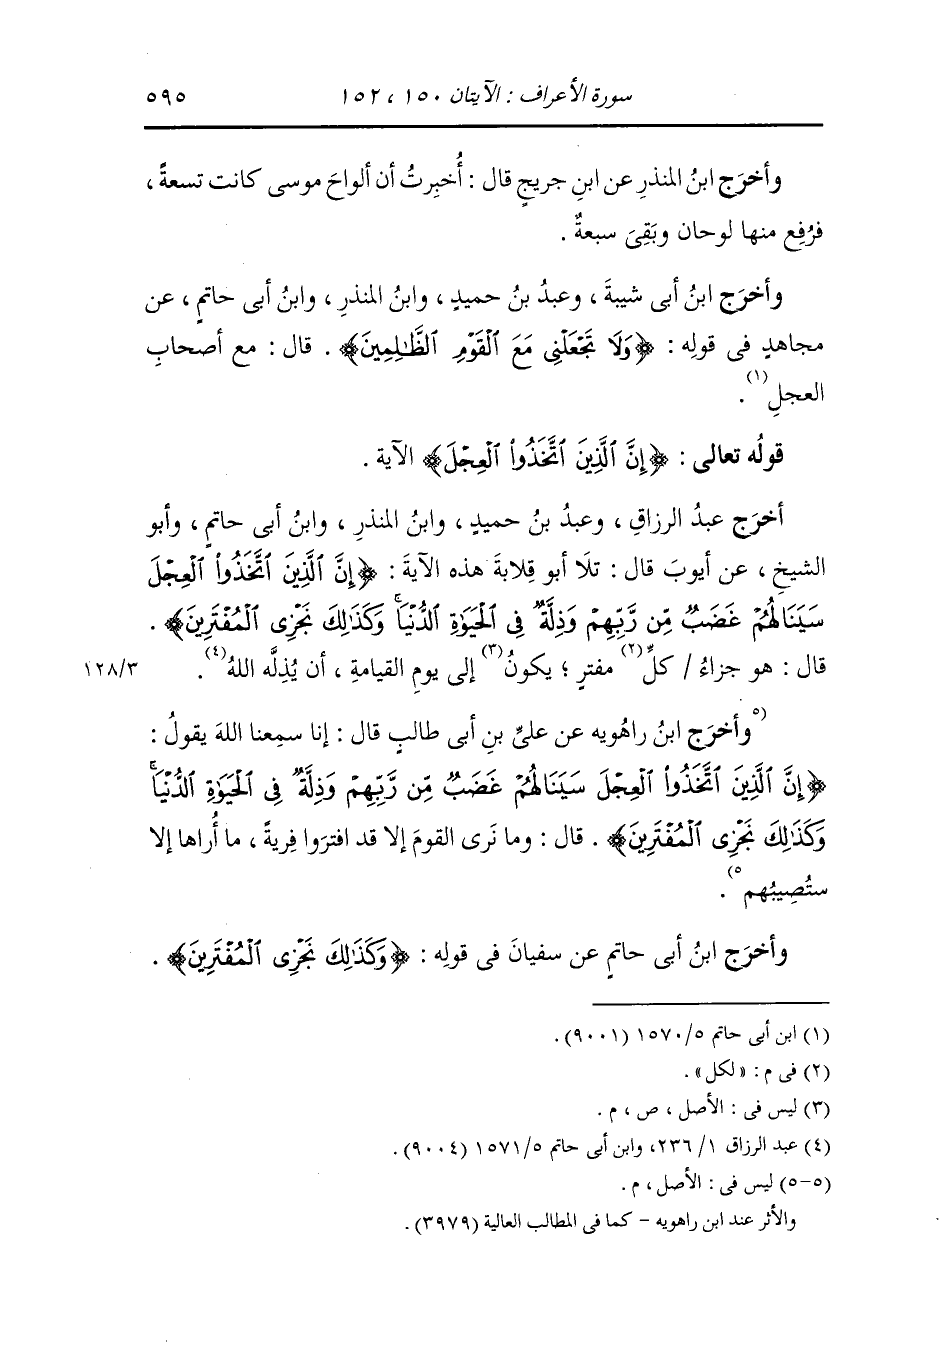 سورة الأعراف : الآيتان ١٥٠ ، ١٥٢ ٥٩٥
وأخرَج ابنُ المنذرِ عن ابنِ جريجٍ قال : أُخبِرتُ أن ألواحَ موسى كانت تسعةً ،
فرُفِع منها لوحان وبَقِىَ سبعةٌ .
وأخرَج ابنُ أبى شيبةَ ، وعبدُ بنُ حميدٍ ، وابنُ المنذرِ ، وابنُ أبى حاتمٍ ، عن
مجاهدٍ فى قولِه : ﴿وَلَا تَجْعَلْنِى مَعَ ٱلْقَوْمِ ٱلظَّٰلِمِينَ﴾ . قال : مع أصحابِ
العجلِ(١) .
قولُه تعالى : ﴿إِنَّ ٱلَّذِينَ ٱتَّخَذُوا۟ ٱلْعِجْلَ﴾ الآية .
أخرَج عبدُ الرزاقِ ، وعبدُ بنُ حميدٍ ، وابنُ المنذرِ ، وابنُ أبى حاتمٍ ، وأبو
الشيخِ ، عن أيوبَ قال : تلَا أبو قِلابةَ هذه الآيةَ : ﴿إِنَّ ٱلَّذِينَ ٱتَّخَذُوا۟ ٱلْعِجْلَ
سَيَنَالُهُمْ غَضَبٌ مِّن رَّبِّهِمْ وَذِلَّةٌ فِى ٱلْحَيَوٰةِ ٱلدُّنْيَا ۚ وَكَذَٰلِكَ نَجْزِى ٱلْمُفْتَرِينَ﴾ .
قال : هو جزاءُ / كلِّ(٢) مفترٍ ؛ يكونُ(٣) إلى يومِ القيامةِ ، أن يُذِلَّه اللهُ(٤) . ١٢٨/٣
(٥وأخرَج ابنُ راهُويه عن علىِّ بنِ أبى طالبٍ قال : إنا سمِعنا اللهَ يقولُ :
﴿إِنَّ ٱلَّذِينَ ٱتَّخَذُوا۟ ٱلْعِجْلَ سَيَنَالُهُمْ غَضَبٌ مِّن رَّبِّهِمْ وَذِلَّةٌ فِى ٱلْحَيَوٰةِ ٱلدُّنْيَا ۚ
وَكَذَٰلِكَ نَجْزِى ٱلْمُفْتَرِينَ﴾ . قال : وما نَرى القومَ إلا قد افترَوا فِريةً ، ما أُراها إلا
ستُصِيبُهم٥) .
وأخرَج ابنُ أبى حاتمٍ عن سفيانَ فى قولِه : ﴿وَكَذَٰلِكَ نَجْزِى ٱلْمُفْتَرِينَ﴾ .
(١) ابن أبى حاتم ١٥٧٠/٥ (٩٠٠١) .
(٢) فى م : «لكل» .
(٣) ليس فى : الأصل ، ص ، م .
(٤) عبد الرزاق ١/ ٢٣٦، وابن أبى حاتم ١٥٧١/٥ (٩٠٠٤) .
(٥-٥) ليس فى : الأصل ، م .
والأثر عند ابن راهويه - كما فى المطالب العالية (٣٩٧٩) .